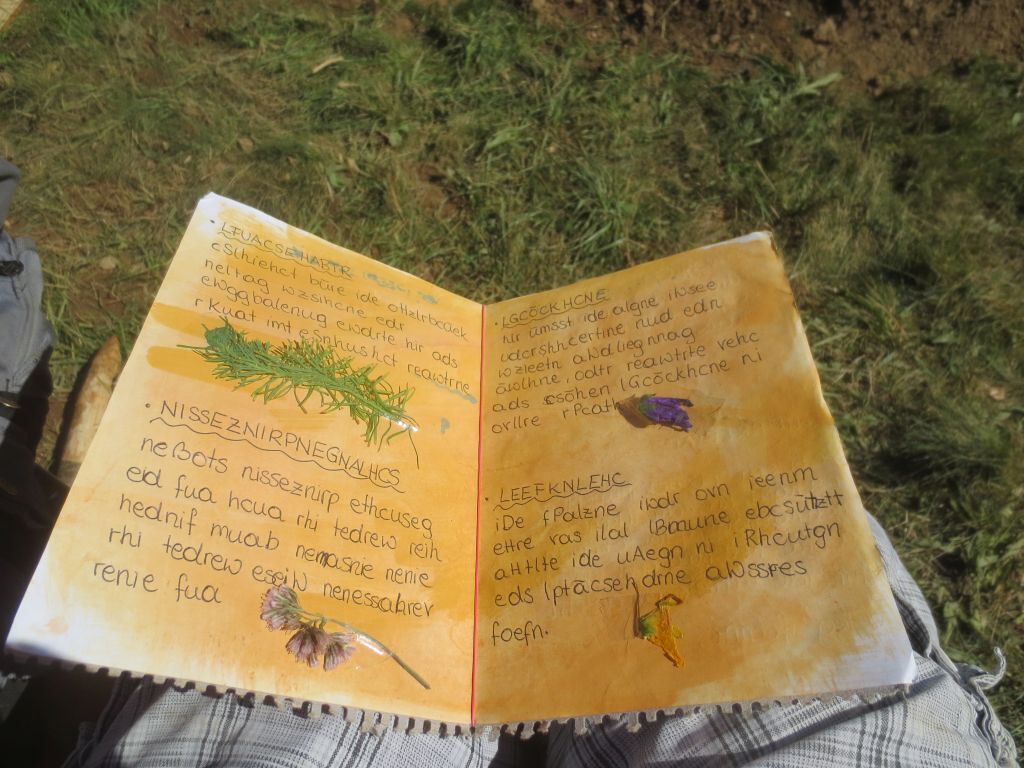 · LTUACSEHABTR
cSlhiehct büre ide oHzlrbcaek
neltag wzsihcne edr
ewggbalenug ewdrte hir ads
rKuat imt esnhushct reawtrne
· NISSEZNIRPNEGNALHCS
neßots nisseznirp ethcuseg
eid fua hcua rhi tedrew reih
nednif muab nemasnie nenie
rhi tedrew eseiW nenessalrev
renie fua
· LGCÖCKHCNE
hir ümsst ide algne iwsee
udcrshhcertine nud edn
wzleetn aWdliegnnag
äwlhne, odtr reawtrte vehc
ads csöhen lGcöckhcne ni
orllre rPcath
· LEEFKNLEHC
iDe fPalzne iwdr ovn ieenm
ettre vas ilal lBauune ebcsütztt
aHtlte ide uAegn ni iRhcutgn
eds lptäcseh drne aWssres
foefn.